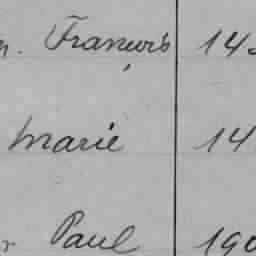 François 14
Marie 14
Paul 190